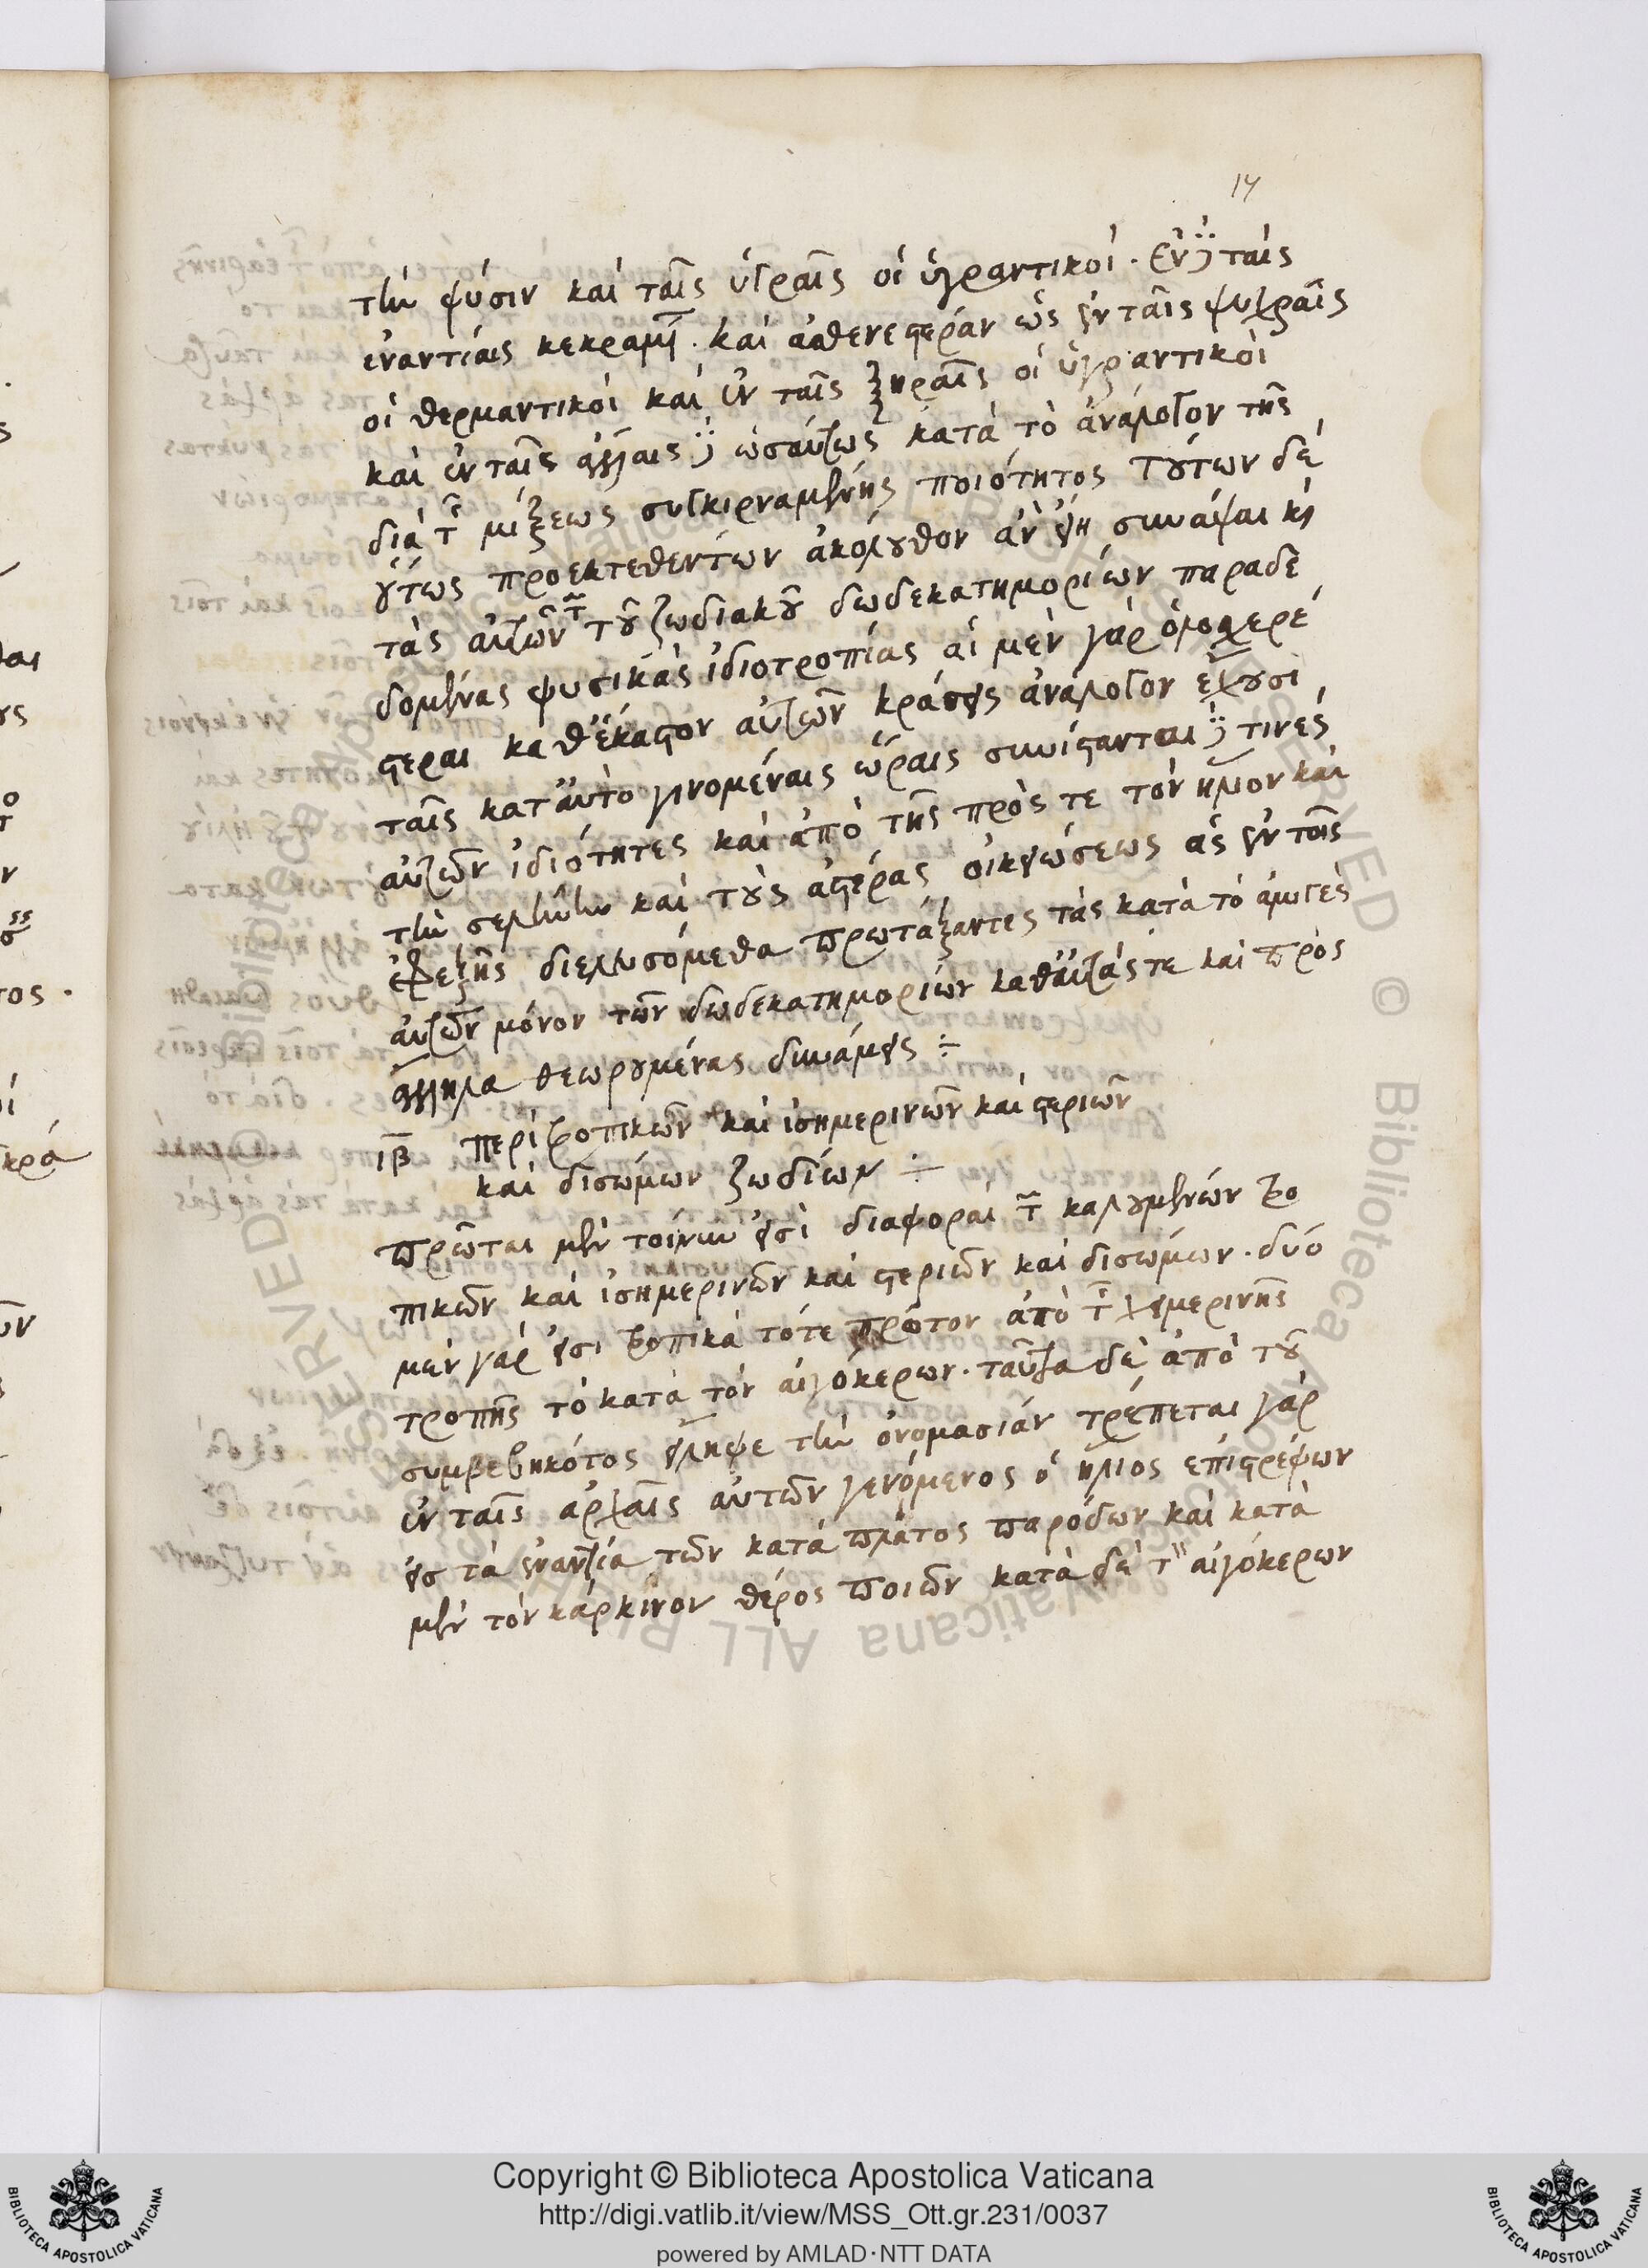 14
τὴν φύσιν καὶ ταῖς ὑγραῖς οἱ ὑγραντικοί. ἐν δὲ ταῖς
ἐναντίαις κεκραμένην. καὶ ἀσθενεστέραν ὡς ἐν ταῖς ψυχραῖς
οἱ θερμαντικοὶ καὶ ἐν ταῖς ξηραῖς οἱ ὑγραντικοὶ
καὶ ἐν ταῖς ἄλλαις δὲ ὡσαύτως κατὰ τὸ ἀνάλογον τῆς
διὰ τῆς μίξεως συγκιρναμένης ποιότητος τούτων δὲ
οὕτως προεκτεθέντων ἀκόλουθον ἂν εἴη συνάψαι καὶ
τὰς αὐτῶν τῶν τοῦ ζωδιακοῦ δωδεκατημορίων παραδε
δομένας φυσικὰς ἰδιοτροπίας αἱ μὲν γὰρ ὁλοσχερέ
στεραι καθ' ἕκαστον αὐτῶν κράσεις ἀνάλογον ἔχουσι
ταῖς κατ' αὐτὸ γινομέναις ὥραις συνίστανται δὲ τινὲς
αὐτῶν ἰδιότητες καὶ ἀπὸ τῆς πρός τε τὸν ἥλιον καὶ
τὴν σελήνην καὶ τοὺς ἀστέρας οἰκειώσεως ὡς ἐν τοῖς
ἐφεξῆς διελευσόμεθα προτάξαντες τὰς κατὰ τὸ ἀμιγὲς
αὐτῶν μόνον τῶν δωδεκατημορίων καθ' αὑτάς τε καὶ πρὸς
ἄλληλα θεωρουμένας δυνάμεις ÷
ιβ περὶ τροπικῶν καὶ ἰσημερινῶν καὶ στεριῶν
καὶ δισώμων ζωδίων ÷
πρῶται μὲν τοίνυν εἰσὶ διαφοραὶ τῶν καλουμένων τρο
πικῶν καὶ ἰσημερινῶν καὶ στεριῶν καὶ δισώμων. δύο
μὲν γάρ εἰσι τροπικὰ τότε πρῶτον ἀπὸ τῆς χειμερινῆς
τροπῆς τὸ κατὰ τὸν αἰγόκερων. ταῦτα δὲ ἀπὸ τοῦ
συμβεβηκότος εἴληφε τὴν ὀνομασίαν τρέπεται γὰρ
ἐν ταῖς ἀρχαῖς αὐτῶν γενόμενος ὁ ἥλιος ἐπιστρέφων
εἰς τὰ ἐναντία τῶν κατὰ πλάτος παρόδων καὶ κατὰ
μὲν τὸν καρκίνον θέρος ποιῶν κατὰ δὲ τὸν αἰγόκερων
© Biblioteca Apostolica Vaticana ALL RIGHTS RESERVED © Biblioteca Apostolica Vaticana ALL RIGHTS RESERVED
Copyright © Biblioteca Apostolica Vaticana
http://digi.vatlib.it/view/MSS_Ott.gr.231/0037
powered by AMLAD·NTT DATA
BIBLIOTECA APOSTOLICA VATICANA
BIBLIOTECA APOSTOLICA VATICANA